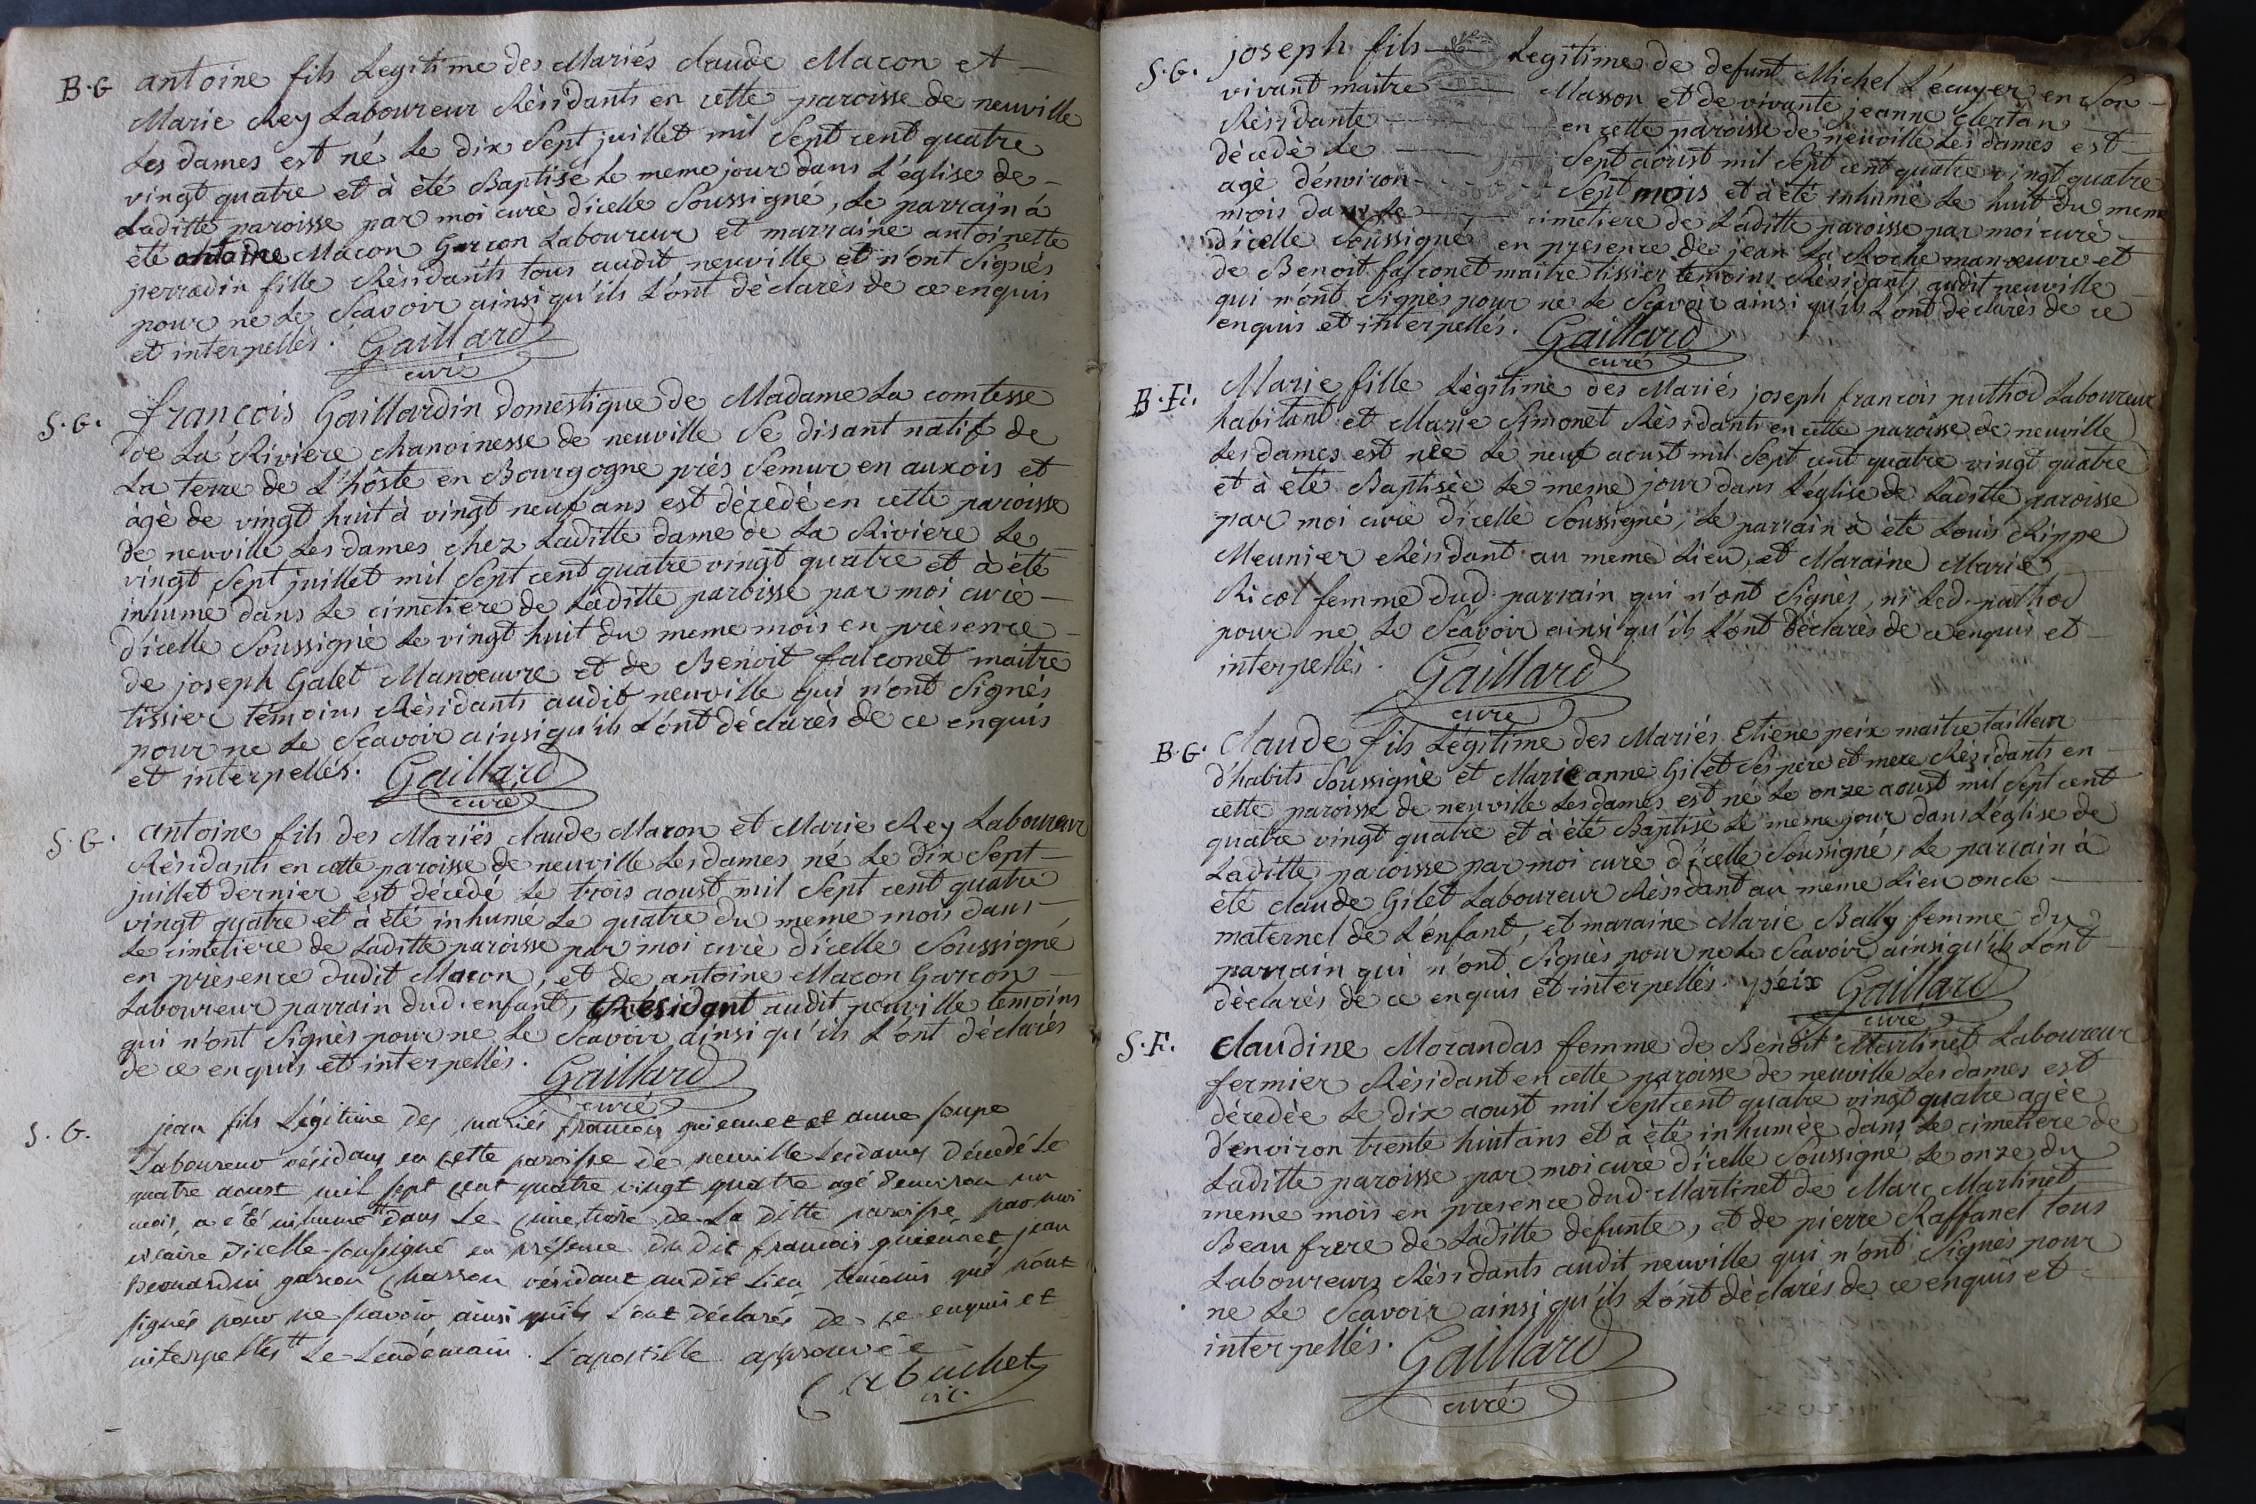 B.G antoine fils Legitime des Mariés claude Macon et
Marie Rey Laboureur Résidants en cette paroisse de neuville
Les dames est né Le dix Sept juillet mil Sept cent quatre
vingt quatre et à èté Baptisé Le meme jour dans L'église de
Laditte paroisse par moi curé d'icelle Soussigné, Le parrain à
été antoine Macon Garcon Laboureur et marraine antoinette
perradin fille Résidants tous audit neuville et n'ont Signés
pour ne Le Scavoir ainsi qu'ils L'ont déclarés de ce enquis
et interpellés. Gaillard
curé
S.G. françois Gaillardin domestique de Madame La comtesse
de La Riviere chanoinesse de neuville Se disant natif de
La terre de L'hôste en Bourgogne près Semur en auxois et
àgè de vingt huit à vingt neuf ans est dècèdè en cette paroisse
de neuville Les dames chez Laditte dame de La Riviere Le
vingt Sept juillet mil Sept cent quatre vingt quatre et à èté
inhumé dans Le cimetiere de Laditte paroisse par moi curé
d'icelle Soussigné Le vingt huit du meme mois en prèsence
de joseph Galet Manoeuvre et de Benoit falconet maitre
tissier tèmoins Résidants audit neuville qui n'ont Signés
pour ne Le Scavoir ainsi qu'ils L'ont dèclarès de ce enquis
et interpellés. Gaillard
curé
S.G. antoine fils des Mariés claude Macon et Marie Rey Laboureur
Résidants en cette paroisse de neuville Les dames né Le dix Sept
juillet dernier est dècedé Le trois aoust mil Sept cent quatre
vingt quatre et à èté inhumé Le quatre du meme mois dans
Le cimetiere de Laditte paroisse par moi curé d'icelle Soussigné
en prèsence dudit Macon, et de antoine Macon Garcon
Laboureur parrain dud. enfant, Résidant audit neuville temoins
qui n'ont Signès pour ne Le Scavoir ainsi qu'ils L'ont déclarés
de ce enquis et interpellés. Gaillard
curé
S.G. jean fils Légitime des mariés francois guiennet et anne soupe
Laboureur résidans en cette paroisse de neuville Lesdames décedé Le
quatre aoust mil sept cent quatre vingt quatre agé d'environ un
mois, a été inhumé # dans Le cimetiere de La ditte paroisse par moi
vicaire d'icelle soussigné en présence du dit francois guiennet jean
garcon résidant audit Lieu temoins qui n'ont
signés pour ne scavoir ainsi quils L'ont déclarés de ce enquis et
interpellés # Le Lendemain. L'apostille approuvée
vic.
S.G. joseph fils Legitime de defunt Michel L'écuyer en Son
vivant maitre Masson et de vivante jeanne
Résidante en cette paroisse de neuville Les dames est
décedè Le Sept aoust mil Sept cent quatre vingt quatre
agè d'environ Sept mois et à èté inhumé Le huit du meme
mois dans Le cimetiere de Laditte paroisse par moi curé
d'icelle Soussigné en prèsence de jean La Roche manœuvre et
de Benoit falconet maitre tissier temoins Résidants audit neuville
qui n'ont Signès pour ne Le Scavoir ainsi qu'ils L'ont dèclarès de ce
enquis et interpellés. Gaillard
curé
B.F. Marie fille Lègitime des Mariés joseph francois puthod Laboureur
habitant et Marie Simonet Rèsidants en cette paroisse de neuville
Les dames est nèe Le neuf aoust mil Sept cent quatre vingt quatre
et à èté Baptisèe Le meme jour dans L'eglise de Laditte paroisse
par moi curé d'icelle Soussigné, Le parrain à èté Louis Rippe
Meunier Rèsidant au meme Lieu, et Maraine Marie
Ricol femme dud. parrain qui n'ont Signès, ni Led. puthod
pour ne Le Scavoir ainsi qu'ils L'ont dèclarès de ce enquis et
interpellés. Gaillard
curé
B.G. Claude fils Légitime des Mariés Etiene peix maitre tailleur
d'habits Soussigné et Marie anne Gilet Ses père et mere Résidants en
cette paroisse de neuville Les dames est né Le onze aoust mil Sept cent
quatre vingt quatre et à èté Baptisè Le meme jour dans L'église de
Laditte paroisse par moi curè d'icelle Soussigné, Le parrain à
été claude Gilet Laboureur Rèsidant au meme Lieu oncle
maternel de L'enfant, et maraine Marie Bally femme du
parrain qui n'ont Signès pour ne Le Scavoir ainsi qu'ils L'ont
dèclarès de ce enquis et interpellés. peix Gaillard
curé
S.F. Claudine Morandas femme de Benoit Martinet Laboureur
fermier Rèsidant en cette paroisse de neuville Les dames est
décedèe Le dix aoust mil Sept cent quatre vingt quatre agèe
d'environ trente huit ans et à èté inhumèe dans Le cimetiere de
Laditte paroisse par moi curé d'icelle Soussigné Le onze du
meme mois en presence dud. Martinet de Marc Martinet
Beau frere de Laditte defunte, et de pierre Raffanel tous
Laboureurs Rèsidants audit neuville qui n'ont Signès pour
ne Le Scavoir ainsi qu'ils L'ont dèclarès de ce enquis et
interpellés. Gaillard
curé